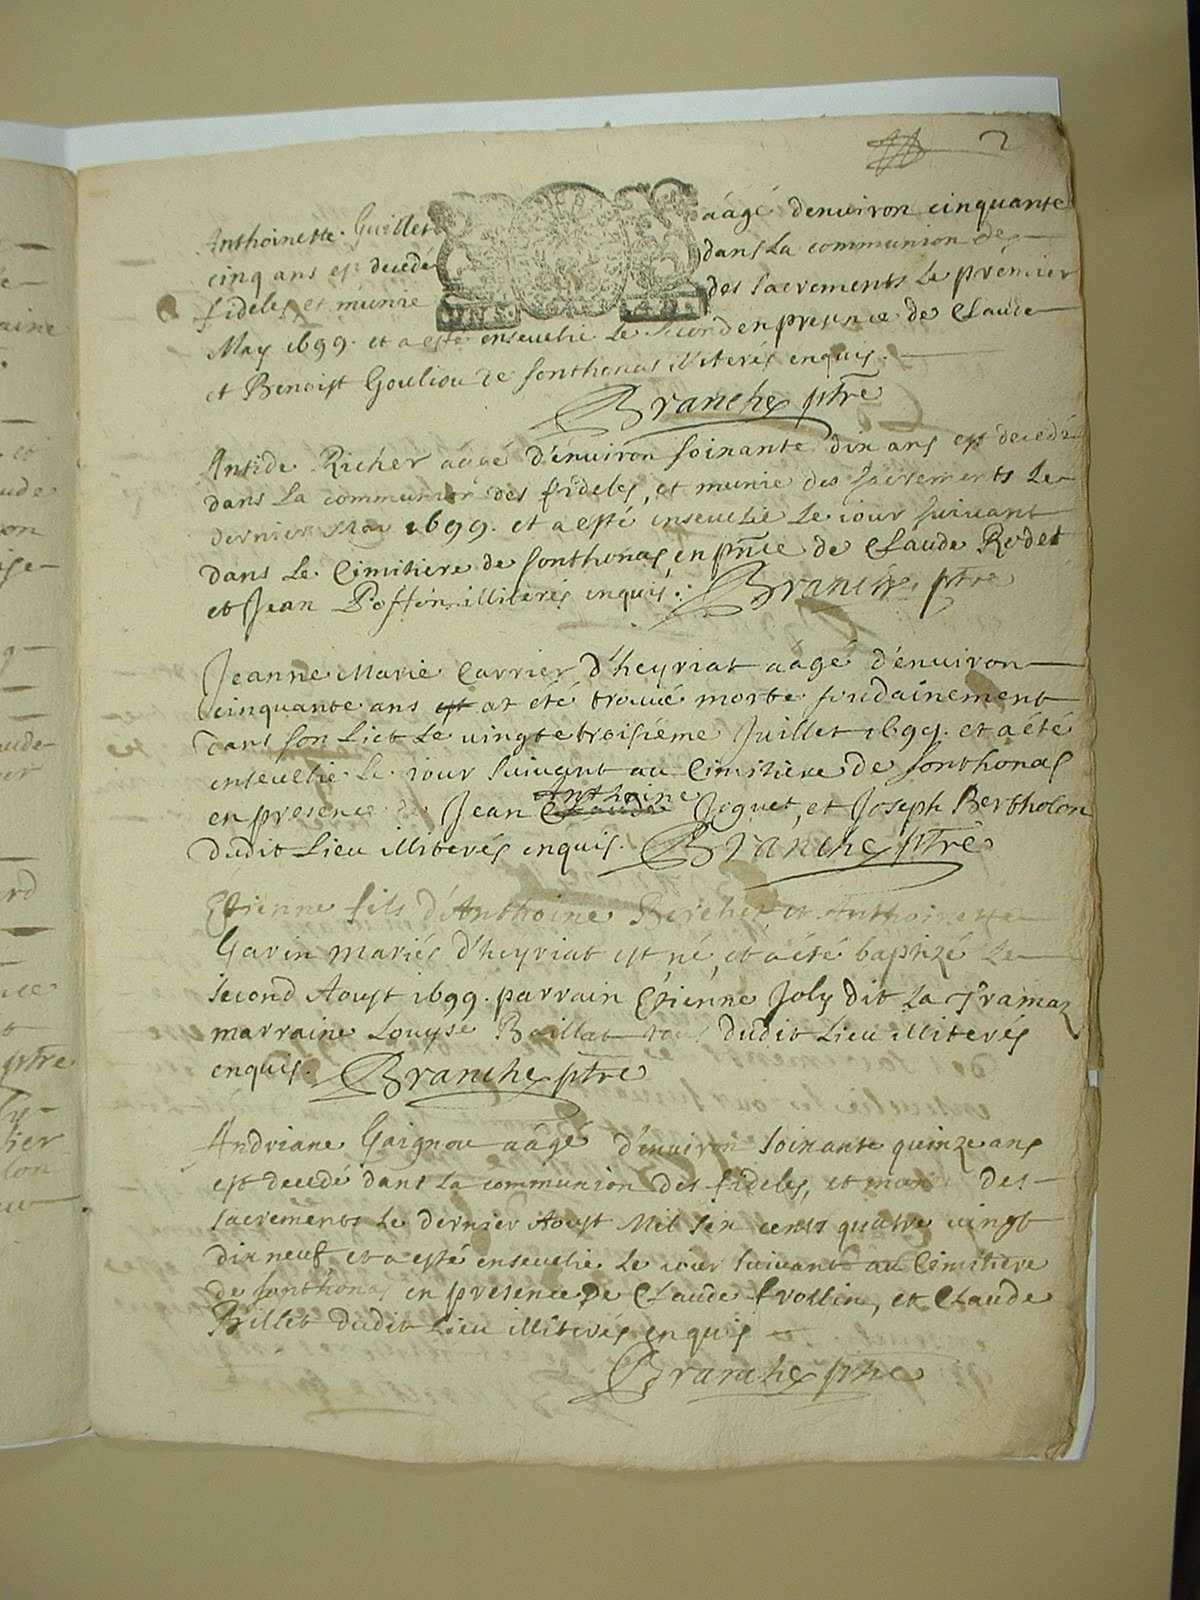 2
Anthoinette Guillet aâgé d'enuiron cinquante
cinq ans est decedé dans La communion des
fideles et munie des sacrements Le prémier
May 1699. et a esté enseuelie Le second en presence de Claude
et Benoist Gouliou de Sonthonas illiterés enquis.
Branche ptre
Antide Richer aâgé d'énuiron soixante dix ans est decedé
dans La communion des fideles, et munie des sacrements Le
dernier May 1699. et a esté enseuelie Le iour suiuant
dans Le Cimitiere de Sonthonas en pnce de Claude Rodet
et Jean illiterés enquis. Branche ptre
Jeanne Marie Carrier d'heyriat aâgé d'énuiron
cinquante ans est at eté trouué morte soudainement
dans son Lict Le vingtetroisiéme Juillet 1699. et a été
enseuelie Le iour suiuant au Cimitiere de Sonthonas
en presence de Jean Claude Anthoine Joquet, et Joseph Bertholon
dudit Lieu illiterés enquis. Branche ptre
Etienne fils d'Anthoine Berchet et Anthoinette
Gavin mariés d'heyriat est né, et a été baptizé Le
second Aoust 1699. parrain Etienne Joly dit La
marraine Louyse Baillat dudit Lieu illiterés
enquis. Branche ptre
Andriane Gaignou aâgé d'enuiron soixante quinze ans
est decedé dans La communion des fideles, et muni des
sacrements Le dernier Aoust Mil six cents quatre vingt
dix neuf et a esté enseuelie Le iour suiuant au Cemitiere
de Sonthonas en presence de Claude frollin, et Claude
Billet dudit Lieu illiterés enquis
Branche ptre